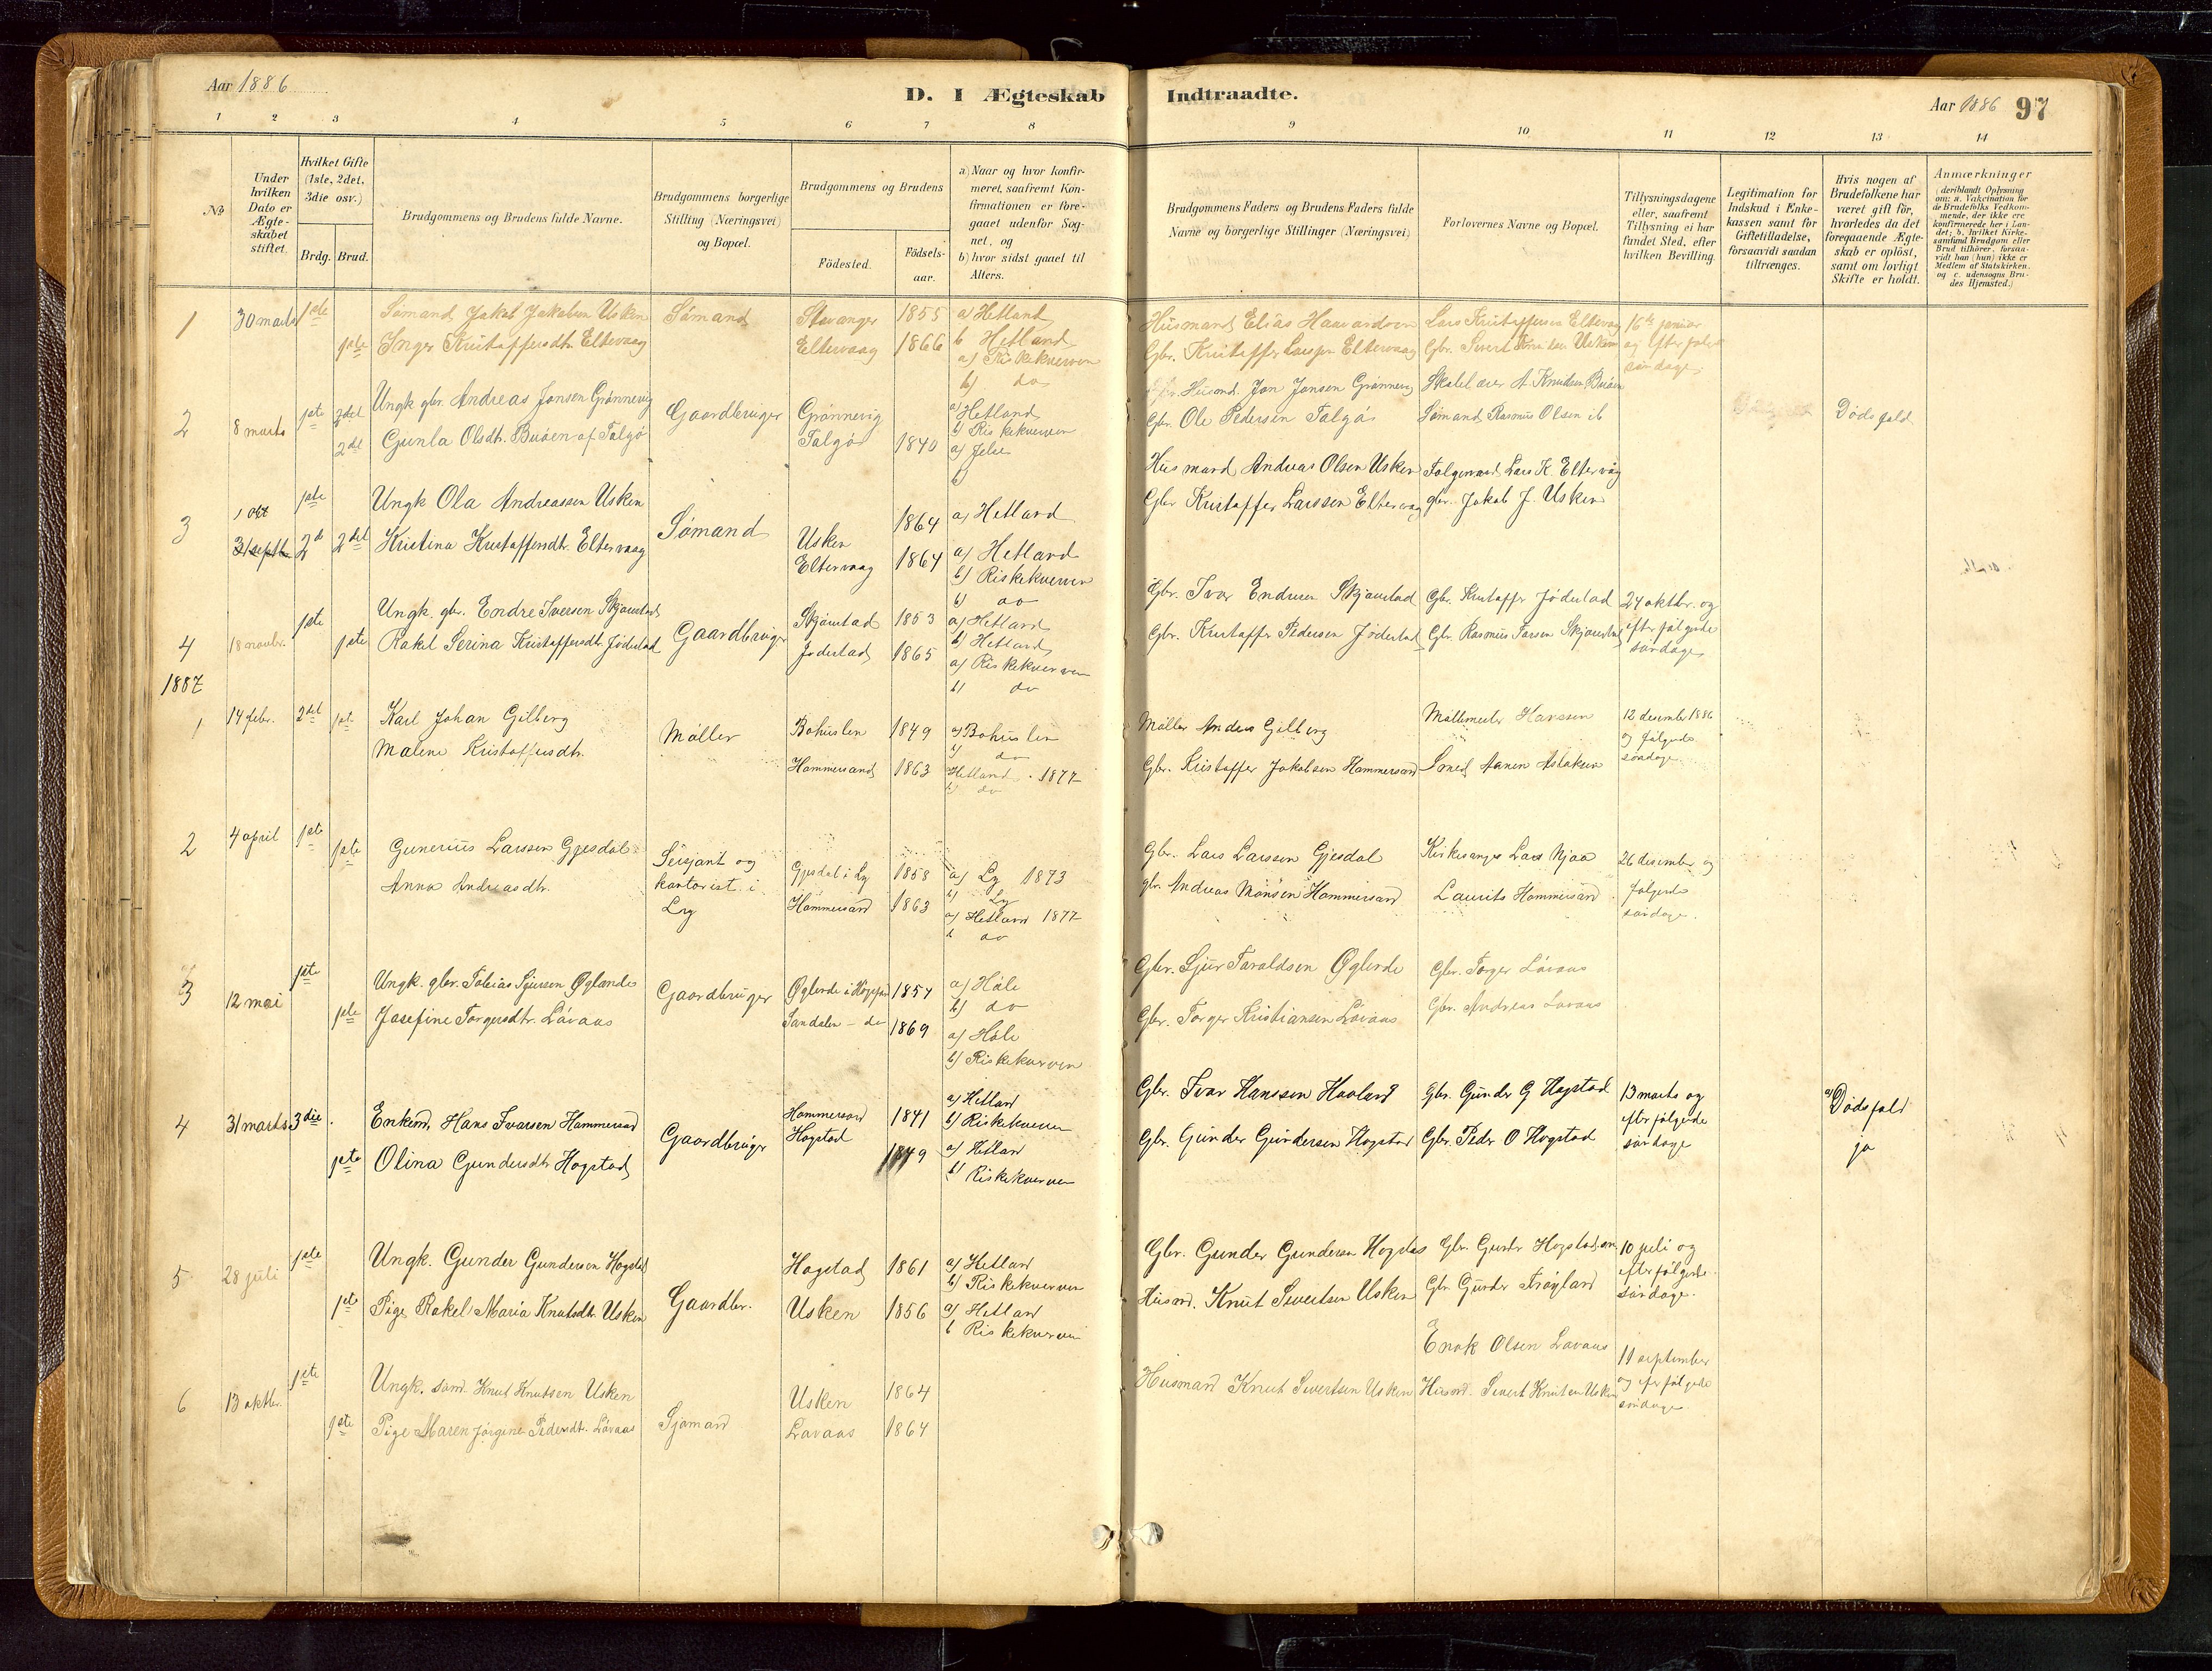 Aar 1886
D. I Ægteskab Indtraadte.
Aar 1886 97
1 2 3 4 5 6 7 8 9 10 11 12 13 14
No
Under hvilken Dato er Ægte-skabet stiftet.
Hvilket Gifte (1ste, 2det, 3die osv.)
Brdg. Brud.
Brudgommens og Brudens fulde Navne.
Brudgommens borgerlige Stilling (Næringsvei) og Bopæl.
Brudgommens og Brudens
Födested.
Födsels-aar.
a) Naar og hvor konfir-meret, saafremt Kon-firmationen er fore-gaaet udenfor Sog-net, og
b) hvor sidst gaaet til Alters.
Brudgommens Faders og Brudens Faders fulde Navne og borgerlige Stillinger (Næringsvei)
Forlovernes Navne og Bopæl.
Tillysningsdagene eller, saafremt Tillysning ei har fundet Sted, efter hvilken Bevilling.
Legitimation for Indskud i Enke-kassen samt for Giftetilladelse, forsaavidt saadan tiltrænges.
Hvis nogen af Brudefolkene har været gift för, hvorledes da det foregaaende Ægte-skab er oplöst, samt om lovligt Skifte er holdt.
Anmærkninger
(deriblandt Oplysning om: a. Vakcination for de Brudefolks Vedkom-mende, der ikke ere konfirmerede her i Lan-det; b. hvilket Kirke-samfund Brudgom eller Brud tilhörer, forsaa-vidt han (hun) ikke er Medlem af Statskirken, og c. udensogns Bru-des Hjemsted.)
1 30 marts 1ste Sømand Jakob Jakobsen Usken Sømand Stavanger 1855 a) Hetland
Husmand Elias Haavardsen Lars Kristoffersen Eltervag 16de januar
1ste Inger Kristoffersdtr. Eltervaag Eltervaag 1866 b Hetland
Gbr. Kristoffer Larssen Eltervaag Gbr. Sivert Knutsen Usken og efterfølg
a) Riskekverven søndage.
b) do
2 8 marts 1ste 2det Ungk gbr. Andreas Jonsen Grønnevig Gaardbruger Grønnevig a) Hetland
Husmd. Jon Jonsen Grønnevig
b) Riskekverven
2det Gunla Olsdtr. Buøen af Talgø Talgø 1840 a) Jelse
b)
Gbr. Ole Pedersen Talgø Sømand Rasmus Olsen ib Dødsfald
3 1 okt 1ste Ungk Ola Andreassen Usken Sømand Usken 1864 a) Hetland
Husmand Andreas Olsen Usken Følgemand Lars K Eltervåg
31 septbr 2d 2det Kristina Kristoffersdtr. Eltervaag Eltervaag 1864 a) Hetland
Gbr Kristoffer Larssen Eltervaag gbr. Jakob J. Usken
b) Riskekverven
b) do
4 18 novbr. 1ste Ungk. gbr. Endre Iversen Skjørestad Gaardbruger Skjørestad 1853 a) Hetland
b) Hetland
Gbr. Ivar Endresen Skjørestad Gbr. Kristoffer Jødestad 24 oktbr. og
1ste Rakel Serina Kristoffersdtr. Jødestad Jødestad 1865 a) Riskekverven
b) do
Gbr. Kristoffer Pedersen Jødestad Gbr. Rasmus Larsen Skjørestad efterfølgende
søndage
1887
1 14 febr. 2det 1ste Karl Johan Gilberg Møller Bohuslen 1849 a) Bohuslen
b) do
Møller Anders Gilberg Møllemester Hanssen 12 desember 1886
og følgende
Malene Kristoffersdtr. Hommersand 1863 Hetland 1877
b) do
Gbr. Kristoffer Jakobsen Hommersand Smed Aanen Aslaksen søndage
2 4 april 1ste 1ste Gunerius Larssen Gjesdal Sersjant og kontorist i Ly Gjesdal i Ly 1858 a) Ly 1873
b) Ly
Gbr. Lars Larssen Gjesdal Kirkesanger Lars Njaa 26 desember og
Anna Andreasdtr. Hommersand 1863 a) Hetland 1877
b do
gbr. Andreas Mønsen Hommersand Laurits Hommersand følgende
søndage.
3 12 mai 1ste Ungk. gbr. Tobias Sjursen Øglende Gaardbruger Øglende i Høgsfjord 1854 a) Høle
b) do
Gbr. Sjur Taraldsen Øglende Gbr. Torger Låvaas
1ste Josefine Torgersdtr. Låvaas Sandalen - do 1869 a) Høle
b) Riskekverven
Gbr. Torger Kristiansen Låvaas Gbr. Andreas Lavaas
4 31 marts 3die Enkemd. Hans Ivarsen Hommersand Gaardbruger Hommersand 1841 a) Hetland
b) Riskekverven
Gbr. Ivar Hanssen Haaland Gbr. Gunder G Hogstad 13 marts og a) Dødsfald
1ste Olina Gundersdtr. Hogstad Hogstad 1849 a) Hetland
b) Riskekverven
Gbr. Gunder Gundersen Hogstad Gbr. Peder O Hogstad efterfølgende
søndage ja
5 28 juli 1ste Ungk. Gunder Gundersen Hogstad Gaardbr. Hogstad 1861 a) Hetland
b) Riskekverven
Gbr. Gunder Gundersen Hogstad Gbr. Gunder Hogstad 10 juli og
1ste Pige Rakel Maria Knutsdtr. Usken Usken 1856 a) Hetland
b Riskekverven
Husmd. Knut Sivertsen Usken Gbr Gunder Frøyland efterfølgende
søndage.
6 13 oktbr. 1ste Ungk. sømd. Knut Knutsen Usken Sjømand Usken 1864
Husmand Knut Sivertsen Usken Enok Olsen Lavaas 11 september
1ste Pige Maren Jørgine Pedersdtr. Låvaas Lavaas 1864
Husmd. Sivert Knutsen Usken og efterfølgende
søndage